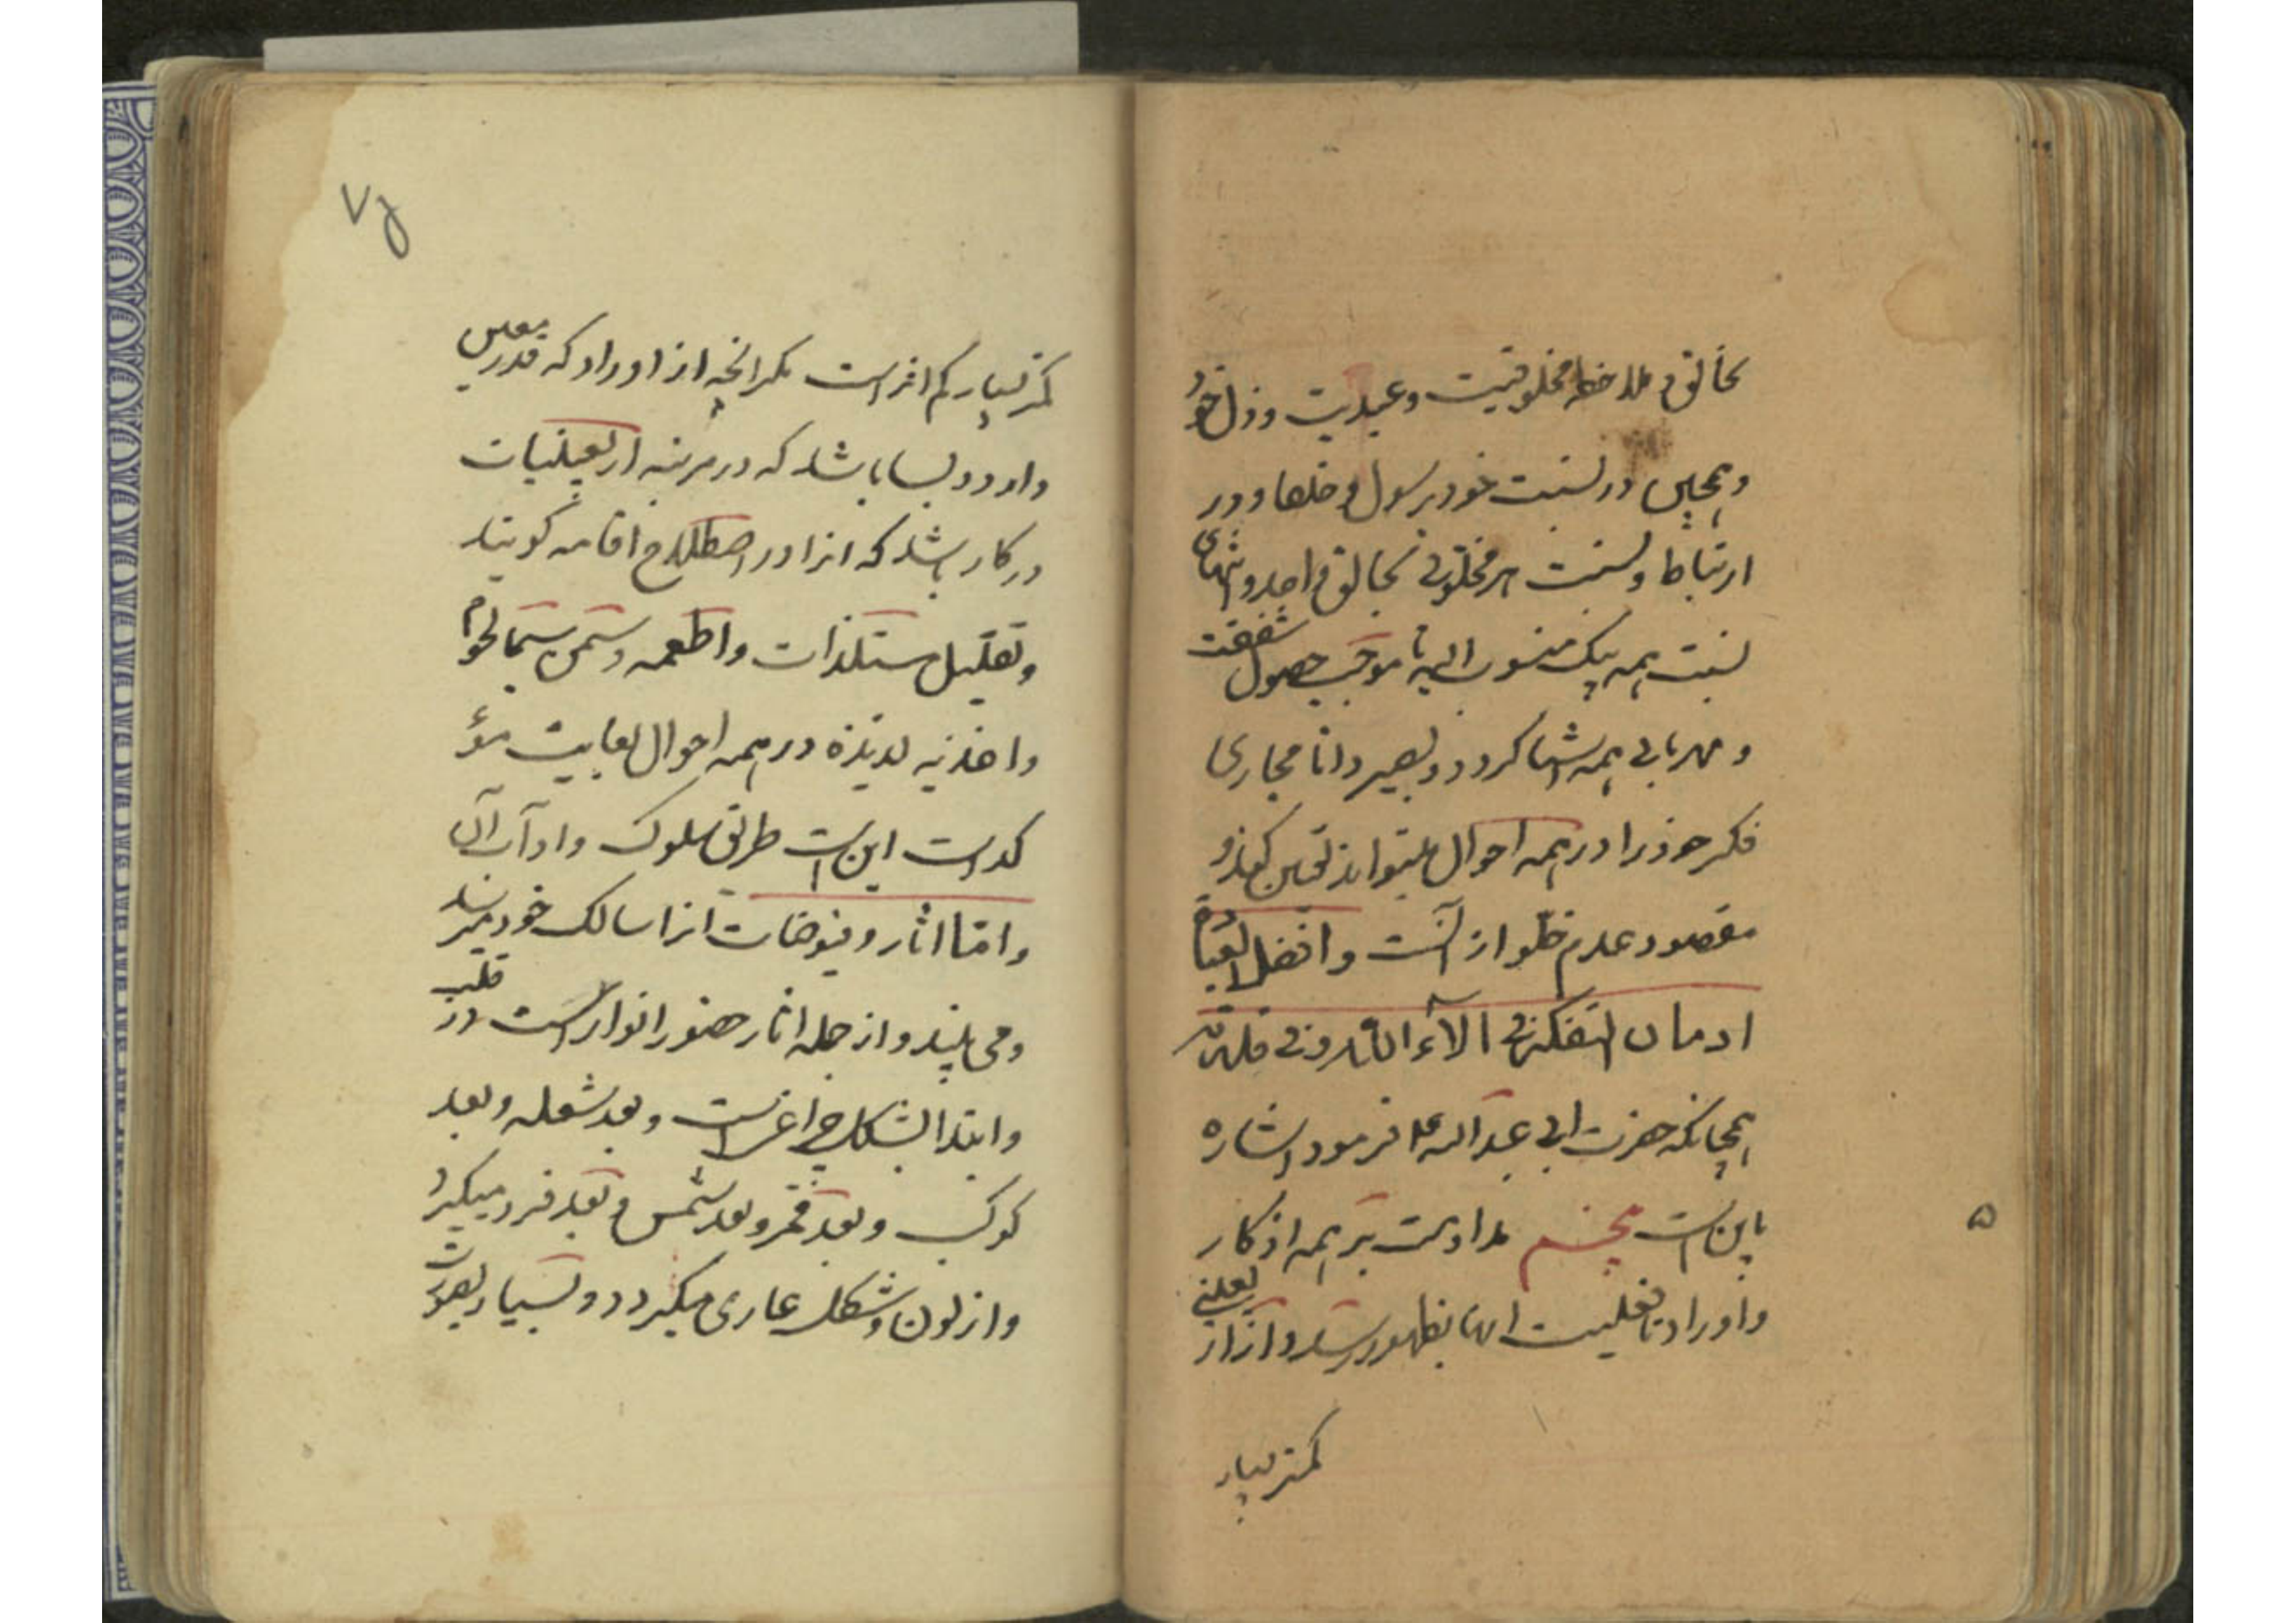 بخالق و ملاحظه مخلوقیت و عبدیت و ذل خود
و همچنین در نسبت خود برسول و خلفا و در
ارتباط و نسبت هر مخلوقی بخالق واحد و انتهای
نسبت همه بیک منسوب الیه تا موجب حصول شفقت
و مهربانی همه اشیا کردد و بصیر دانا مجاری
فکر خود را در همه احوال میتواند تعیین کند و
مقصود عدم خلو از آنست و افضل العبادة
ادمان التفکر فی الآء الله و فی قدرته
همچنانکه حضرت ابی عبدالله ع فرمود اشاره
باین است پنجم مداومت بر همه اذکار
و اوراد تا فعلیت انها بظهور رسد و از از یعنی
کمتر بسیار
۵
کمتر بسیار کم اثر است مکر انچه از اوراد که قدر معین
وارد و بسا باشد که در مرتبه اربعینیات
در کار باشد که انرا در اصطلاح اقامه کویند
و تقلیل مستلذات و اطعمه دسمه سیما لحوم
و اغذیه لذیذه در همه احوال بغایت مؤ
کد است این است طریق سلوک و اداب آن
و اما اثار و فیوضات انرا سالک خود میرسد
و می بیند و از جمله اثار حضور انوار است در قلب
و ابتدا بشکل چراغ است و بعد شعله و بعد
کوکب و بعد قمر و بعد شمس و بعد فرو میکیرد
و از لون و شکل عاری میکردد و بسیار بصورت